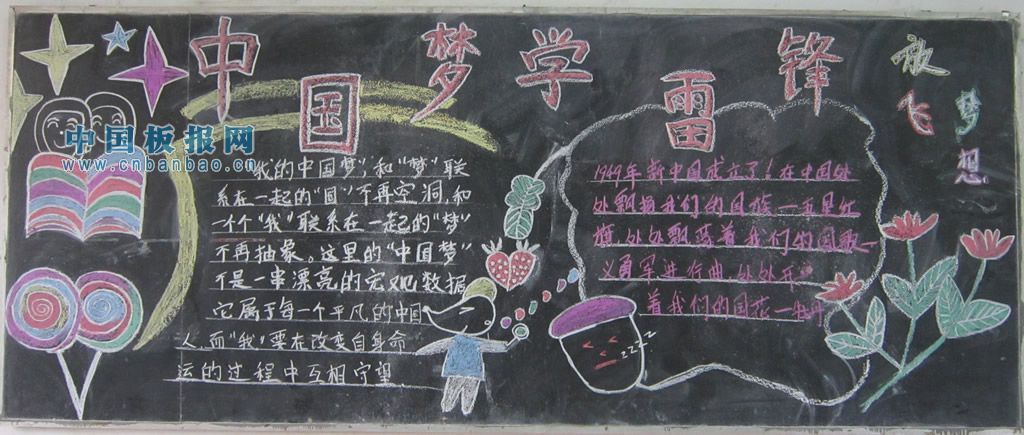 中国梦学雷锋
放飞
梦想
中国板报网
www.cnbanbao.cn
"我的中国梦",和"梦"联
系在一起的"国"不再空洞,和
一个"我"联系在一起的"梦"
不再抽象。这里的"中国梦"
不是一串漂亮的宏观数据
它属于每一个平凡的中国
人,而"我"要在改变自身命
运的过程中互相守望
1949年新中国成立了!在中国处
处飘扬我们的国旗一五星红
旗,处处飘荡着我们的国歌一
义勇军进行曲,处处开
着我们的国花一牡丹
zzzz